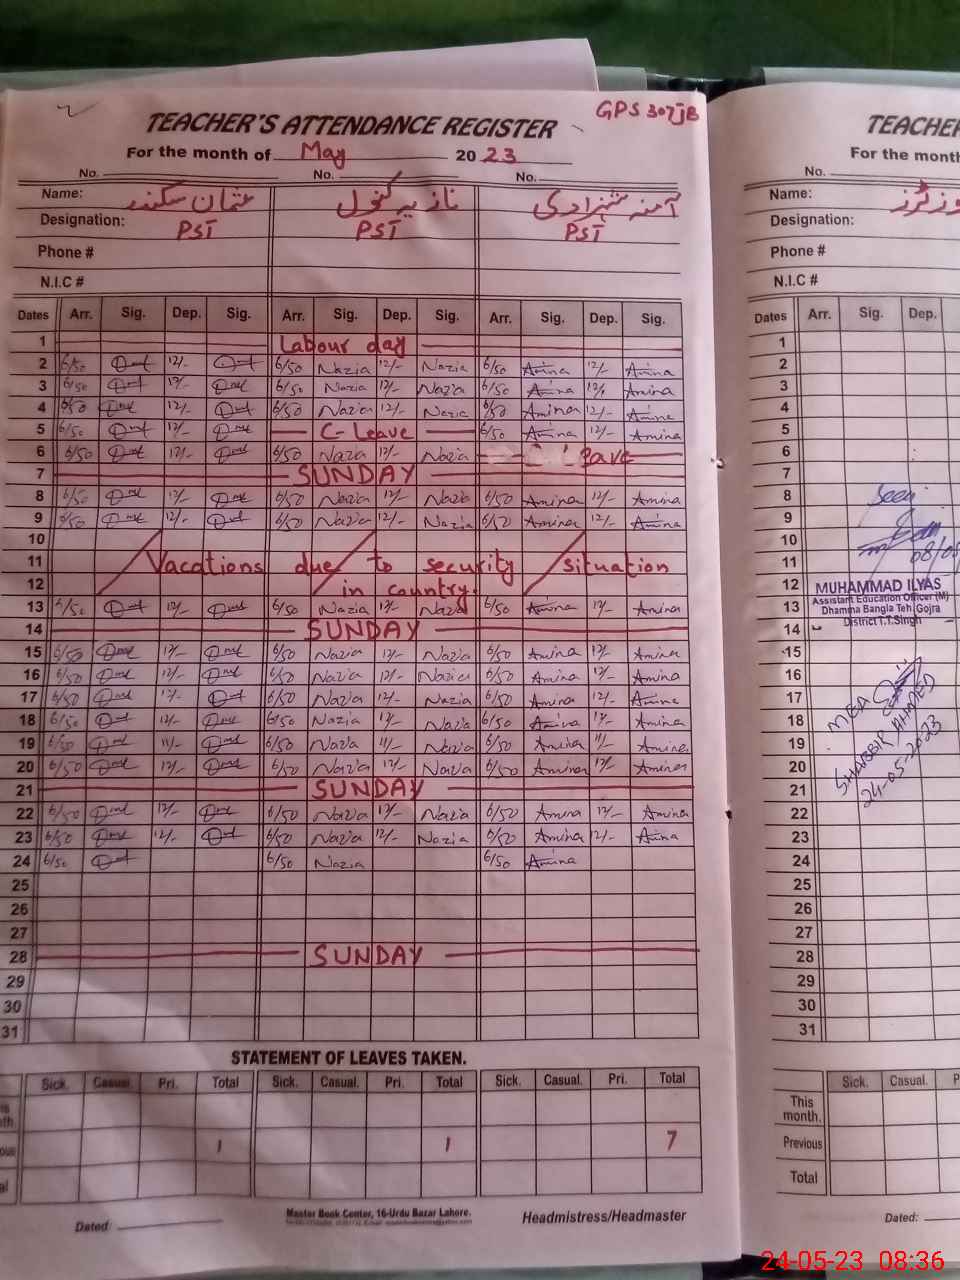 GPS 307JB
TEACHER'S ATTENDANCE REGISTER
For the month of May 2023
No. No. No.
Name: عثمان سکندر نازیہ کنول آمنہ شہزادی
Designation: PST PST PST
Phone #
N.I.C #
Dates Arr. Sig. Dep. Sig. Arr. Sig. Dep. Sig. Arr. Sig. Dep. Sig.
1 Labour day
2 6/50 12/- 6/50 Nazia 12/- Nazia 6/50 Amina 12/- Amina
3 6/50 12/- 6/50 Nazia 12/- Nazia 6/50 Amina 12/- Amina
4 6/50 12/- 6/50 Nazia 12/- Nazia 6/50 Amina 12/- Amina
5 6/50 12/- C-Leave 6/50 Amina 12/- Amina
6 6/50 12/- 6/50 Nazia 12/- Nazia
7 SUNDAY
8 6/50 12/- 6/50 Nazia 12/- Nazia 6/50 Amina 12/- Amina
9 6/50 12/- 6/50 Nazia 12/- Nazia 6/50 Amina 12/- Amina
10
11 Vacations due to security situation
12 in country.
13 6/50 12/- 6/50 Nazia 12/- Nazia 6/50 Amina 12/- Amina
14 SUNDAY
15 6/50 12/- 6/50 Nazia 12/- Nazia 6/50 Amina 12/- Amina
16 6/50 12/- 6/50 Nazia 12/- Nazia 6/50 Amina 12/- Amina
17 6/50 12/- 6/50 Nazia 12/- Nazia 6/50 Amina 12/- Amina
18 6/50 12/- 6/50 Nazia 12/- Nazia 6/50 Amina 12/- Amina
19 6/50 11/- 6/50 Nazia 11/- Nazia 6/50 Amina 11/- Amina
20 6/50 12/- 6/50 Nazia 12/- Nazia 6/50 Amina 12/- Amina
21 SUNDAY
22 6/50 12/- 6/50 Nazia 12/- Nazia 6/50 Amina 12/- Amina
23 6/50 12/- 6/50 Nazia 12/- Nazia 6/50 Amina 12/- Amina
24 6/50 6/50 Nazia 6/50 Amina
25
26
27
28 SUNDAY
29
30
31
STATEMENT OF LEAVES TAKEN.
Sick. Casual. Pri. Total Sick. Casual. Pri. Total Sick. Casual. Pri. Total
1 1 7
Dated:
Master Book Center, 16-Urdu Bazar Lahore.
Headmistress/Headmaster
TEACHE
For the month
No.
Name:
Designation:
Phone #
N.I.C #
Dates Arr. Sig. Dep.
1
2
3
4
5
6
7
8 Seen
9
10
11 08/05
12 MUHAMMAD ILYAS
Assistant Education Officer (M)
13 Dhamna Bangla Teh. Gojra
District T.T.Singh
14
15
16
17 MEA
18 SHABBIR AHMED
19 24-05-2023
20
21
22
23
24
25
26
27
28
29
30
31
Sick. Casual. P
This month.
Previous
Total
Dated:
24-05-23 08:36